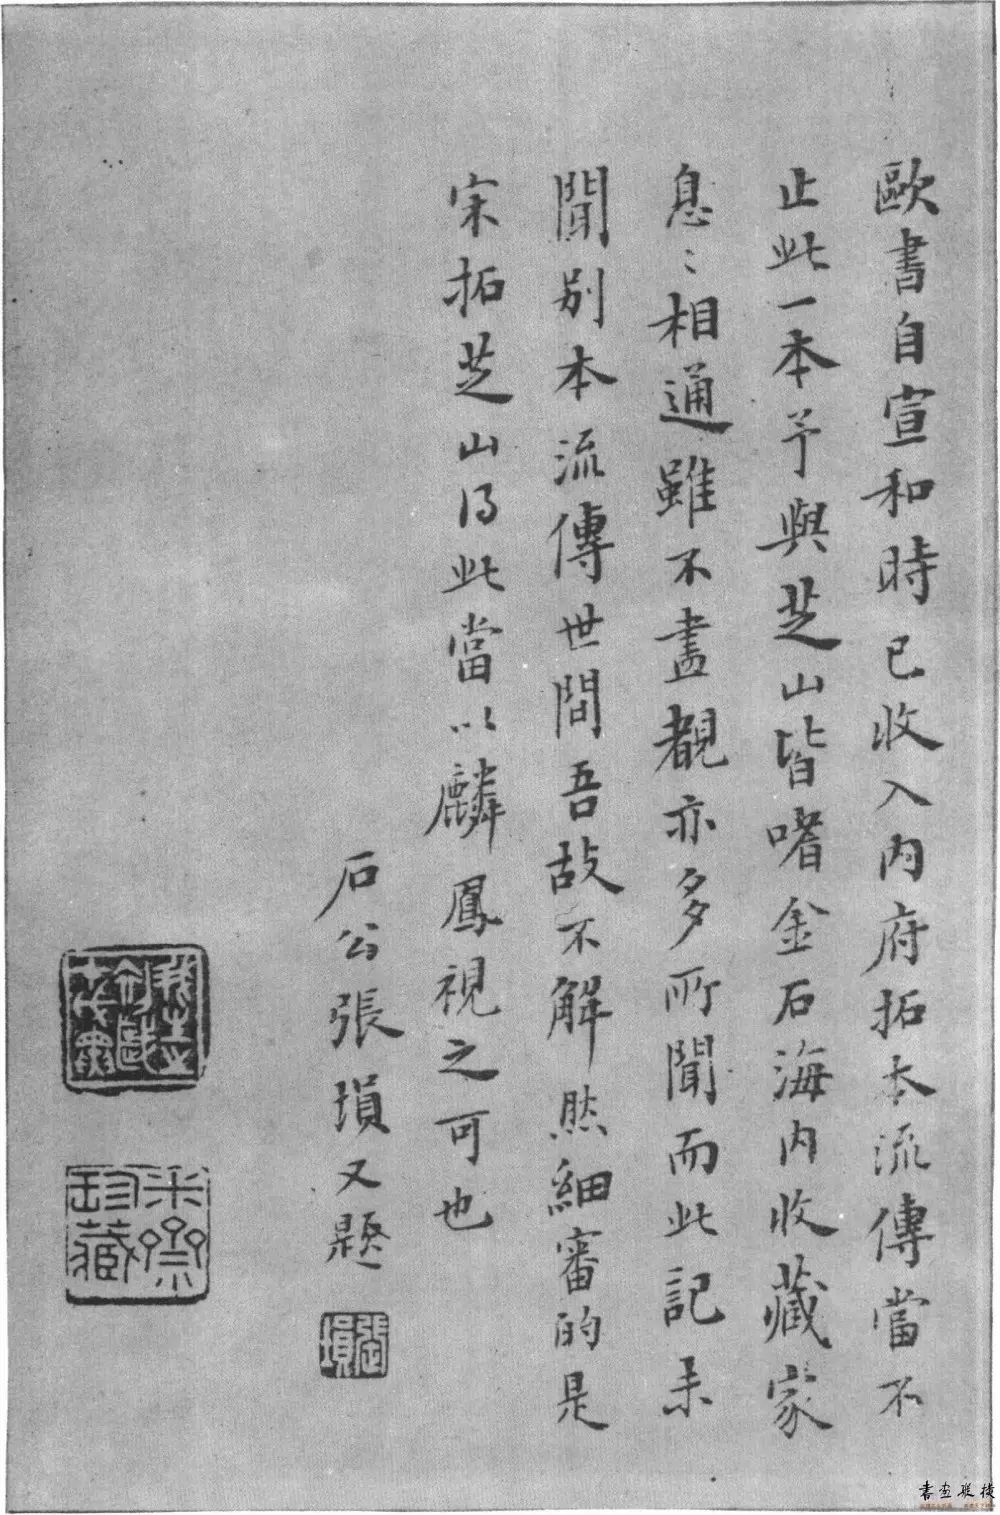 歐書自宣和時已收入內府拓本流傳當不
止此一本予與芝山皆嗜金石海內收藏家
息〻相通雖不盡觀亦多所聞而此記未
聞別本流傳世間吾故不解然細審的是
宋拓芝山得此當以麟鳳視之可也
石公張塤又題
張塤
珍藏
書畫聯棧